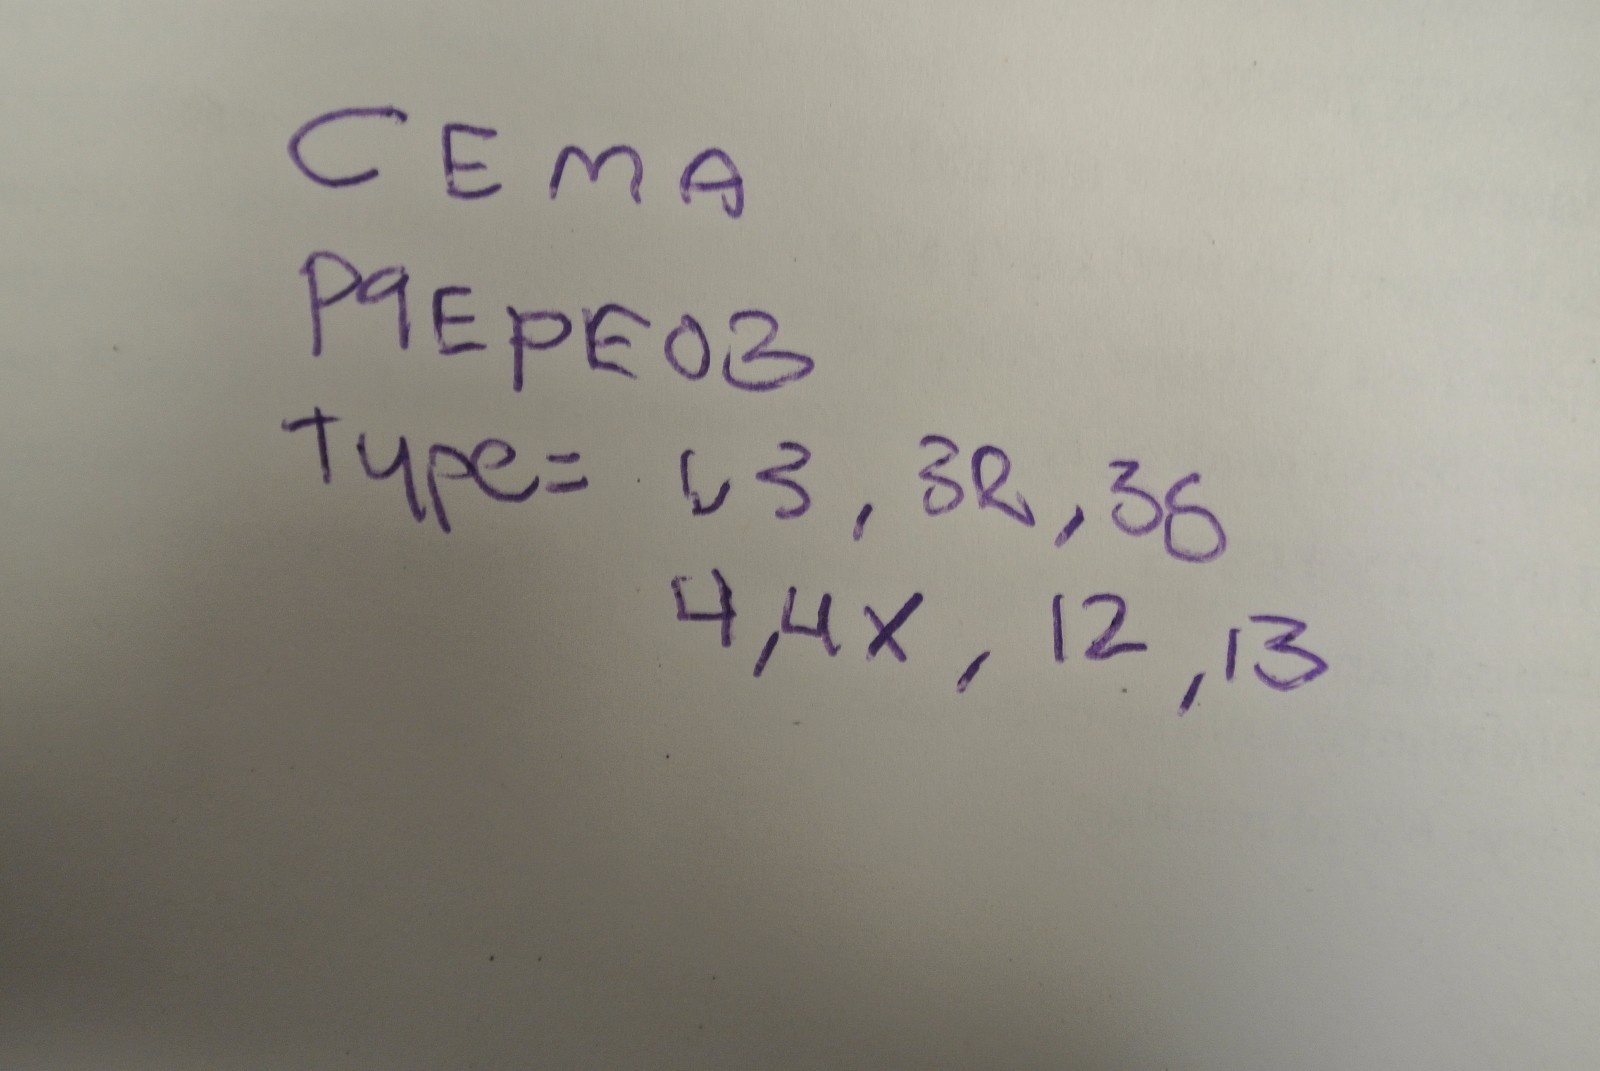 CEMA
P9EPE03
Type= 3, 3R, 3S
4, 4X, 12, 13